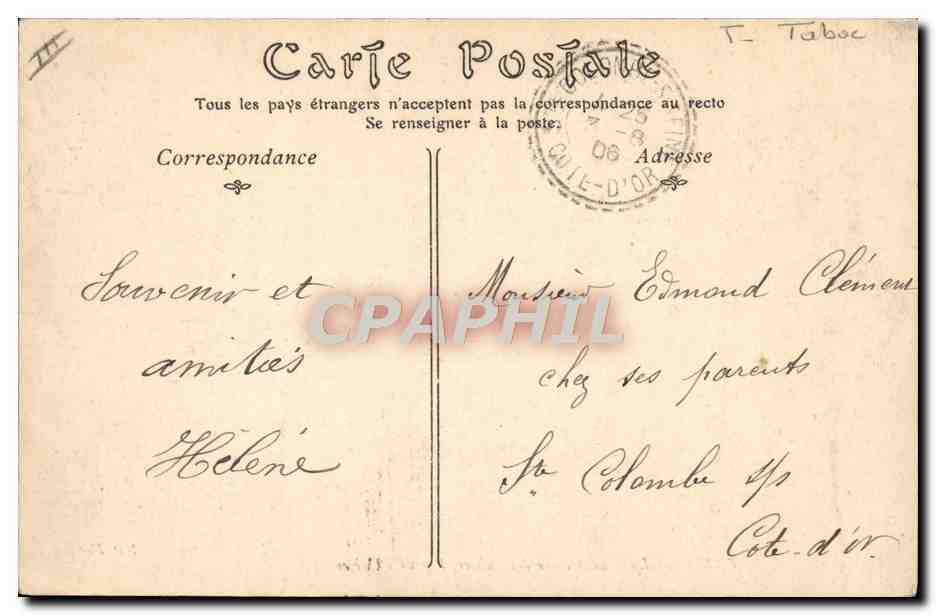 III
T- Tabac
Carte Postale
Tous les pays étrangers n'acceptent pas la correspondance au recto
Se renseigner à la poste.
Correspondance
Adresse
25 -8
06
COTE-D'OR
Souvenir et
amitiés
Hélène
Monsieur Edmond Clément
chez ses parents
Ste Colombe s/s
Cote-d'or
CPAPHIL